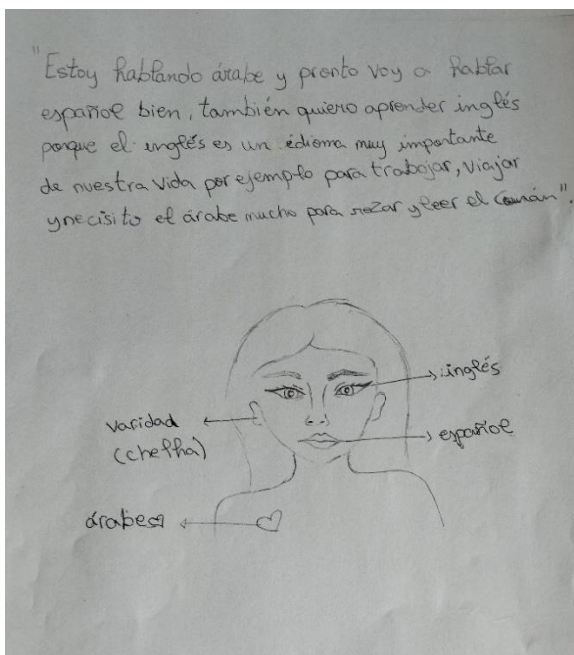 "Estoy hablando árabe y pronto voy a hablar
español bien, también quiero aprender inglés
porque el inglés es un édioma muy importante
de nuestra vida por ejemplo para trabajar, viajar
y necisito el árabe mucho para rezar y leer el".
inglés
varidad
(chelha)
español
árabe